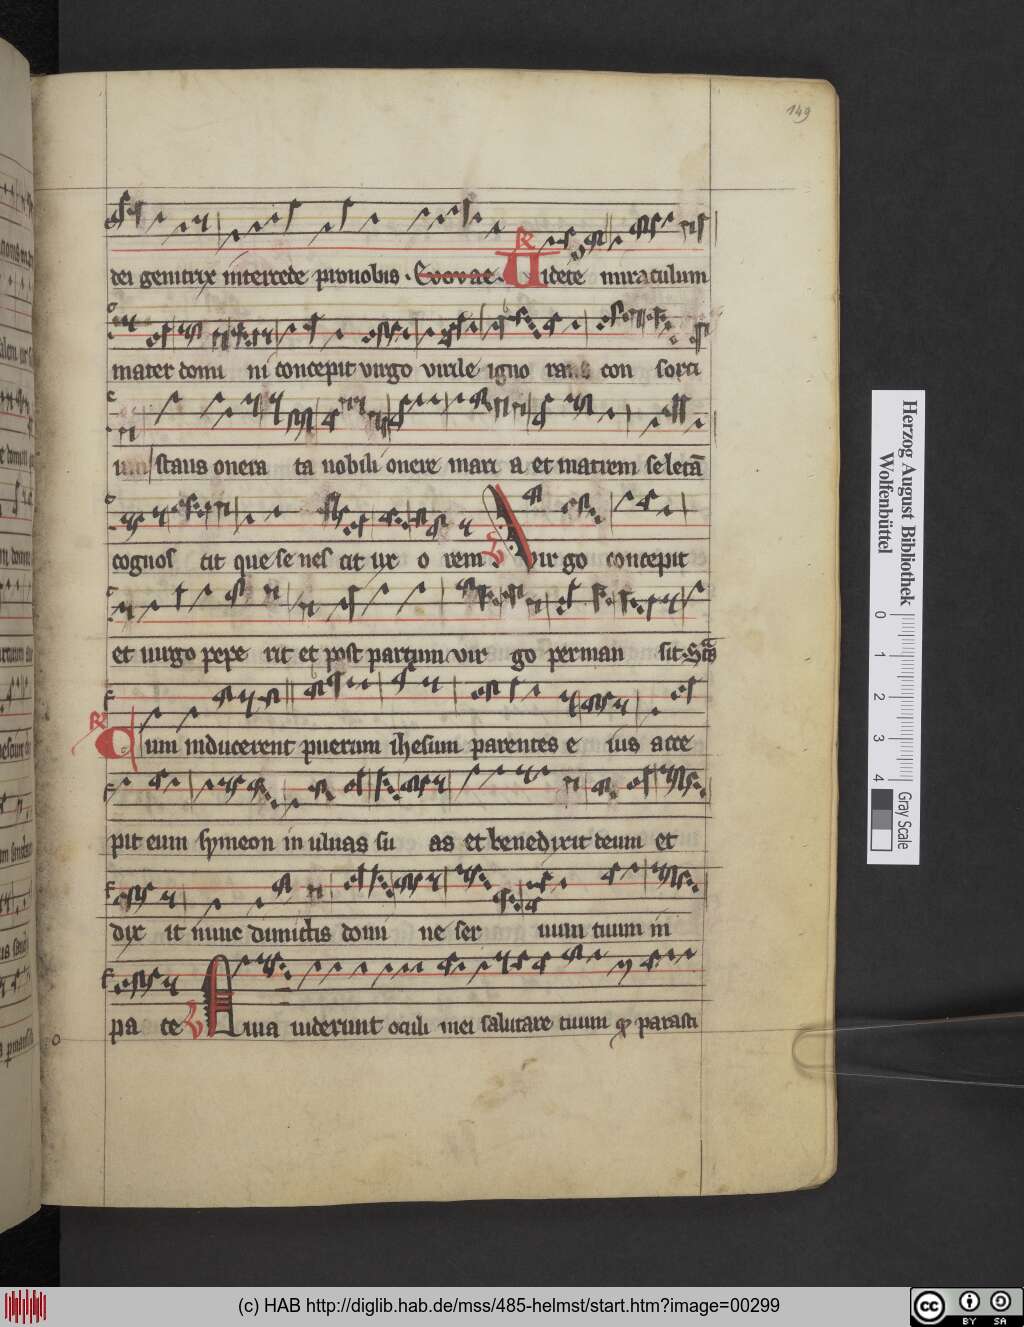 149
dei genitrix intercede pro nobis . Evovae . R Uidete miraculum
mater domi ni concepit virgo virile igno rans con sorti
um stans onera ta nobili onere mari a et matrem se letā
cognos cit que se nes cit ux o rem V Vir go concepit
et uirgo pepe rit et post partum vir go perman sit
R Cum inducerent puerum ihesum parentes e ius acce
pit eum symeon in ulnas su as et benedixit deum et
dix it nunc dimittis domi ne ser uum tuum in
pa ce V Quia uiderunt oculi mei salutare tuum parasti
Herzog August Bibliothek
Wolfenbüttel
0 1 2 3 4 Gray Scale
(c) HAB http://diglib.hab.de/mss/485-helmst/start.htm?image=00299
cc BY SA